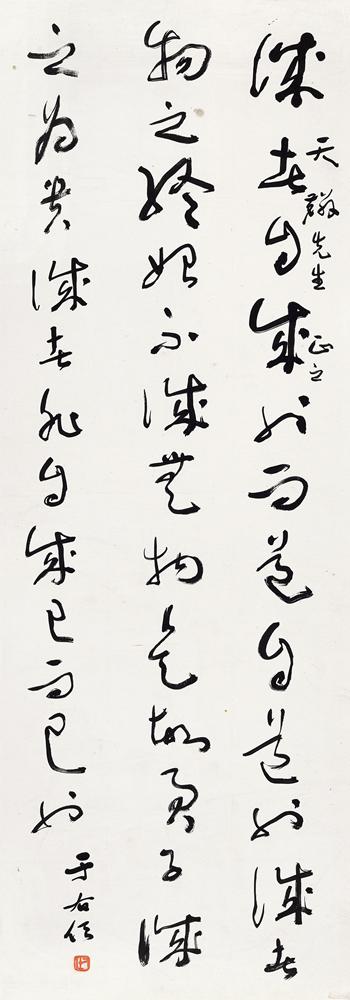 誠者自成也而道自道也誠者
物之終始不誠無物是故君子誠
之為貴誠者非自成己而已也
天先生正之
于右任